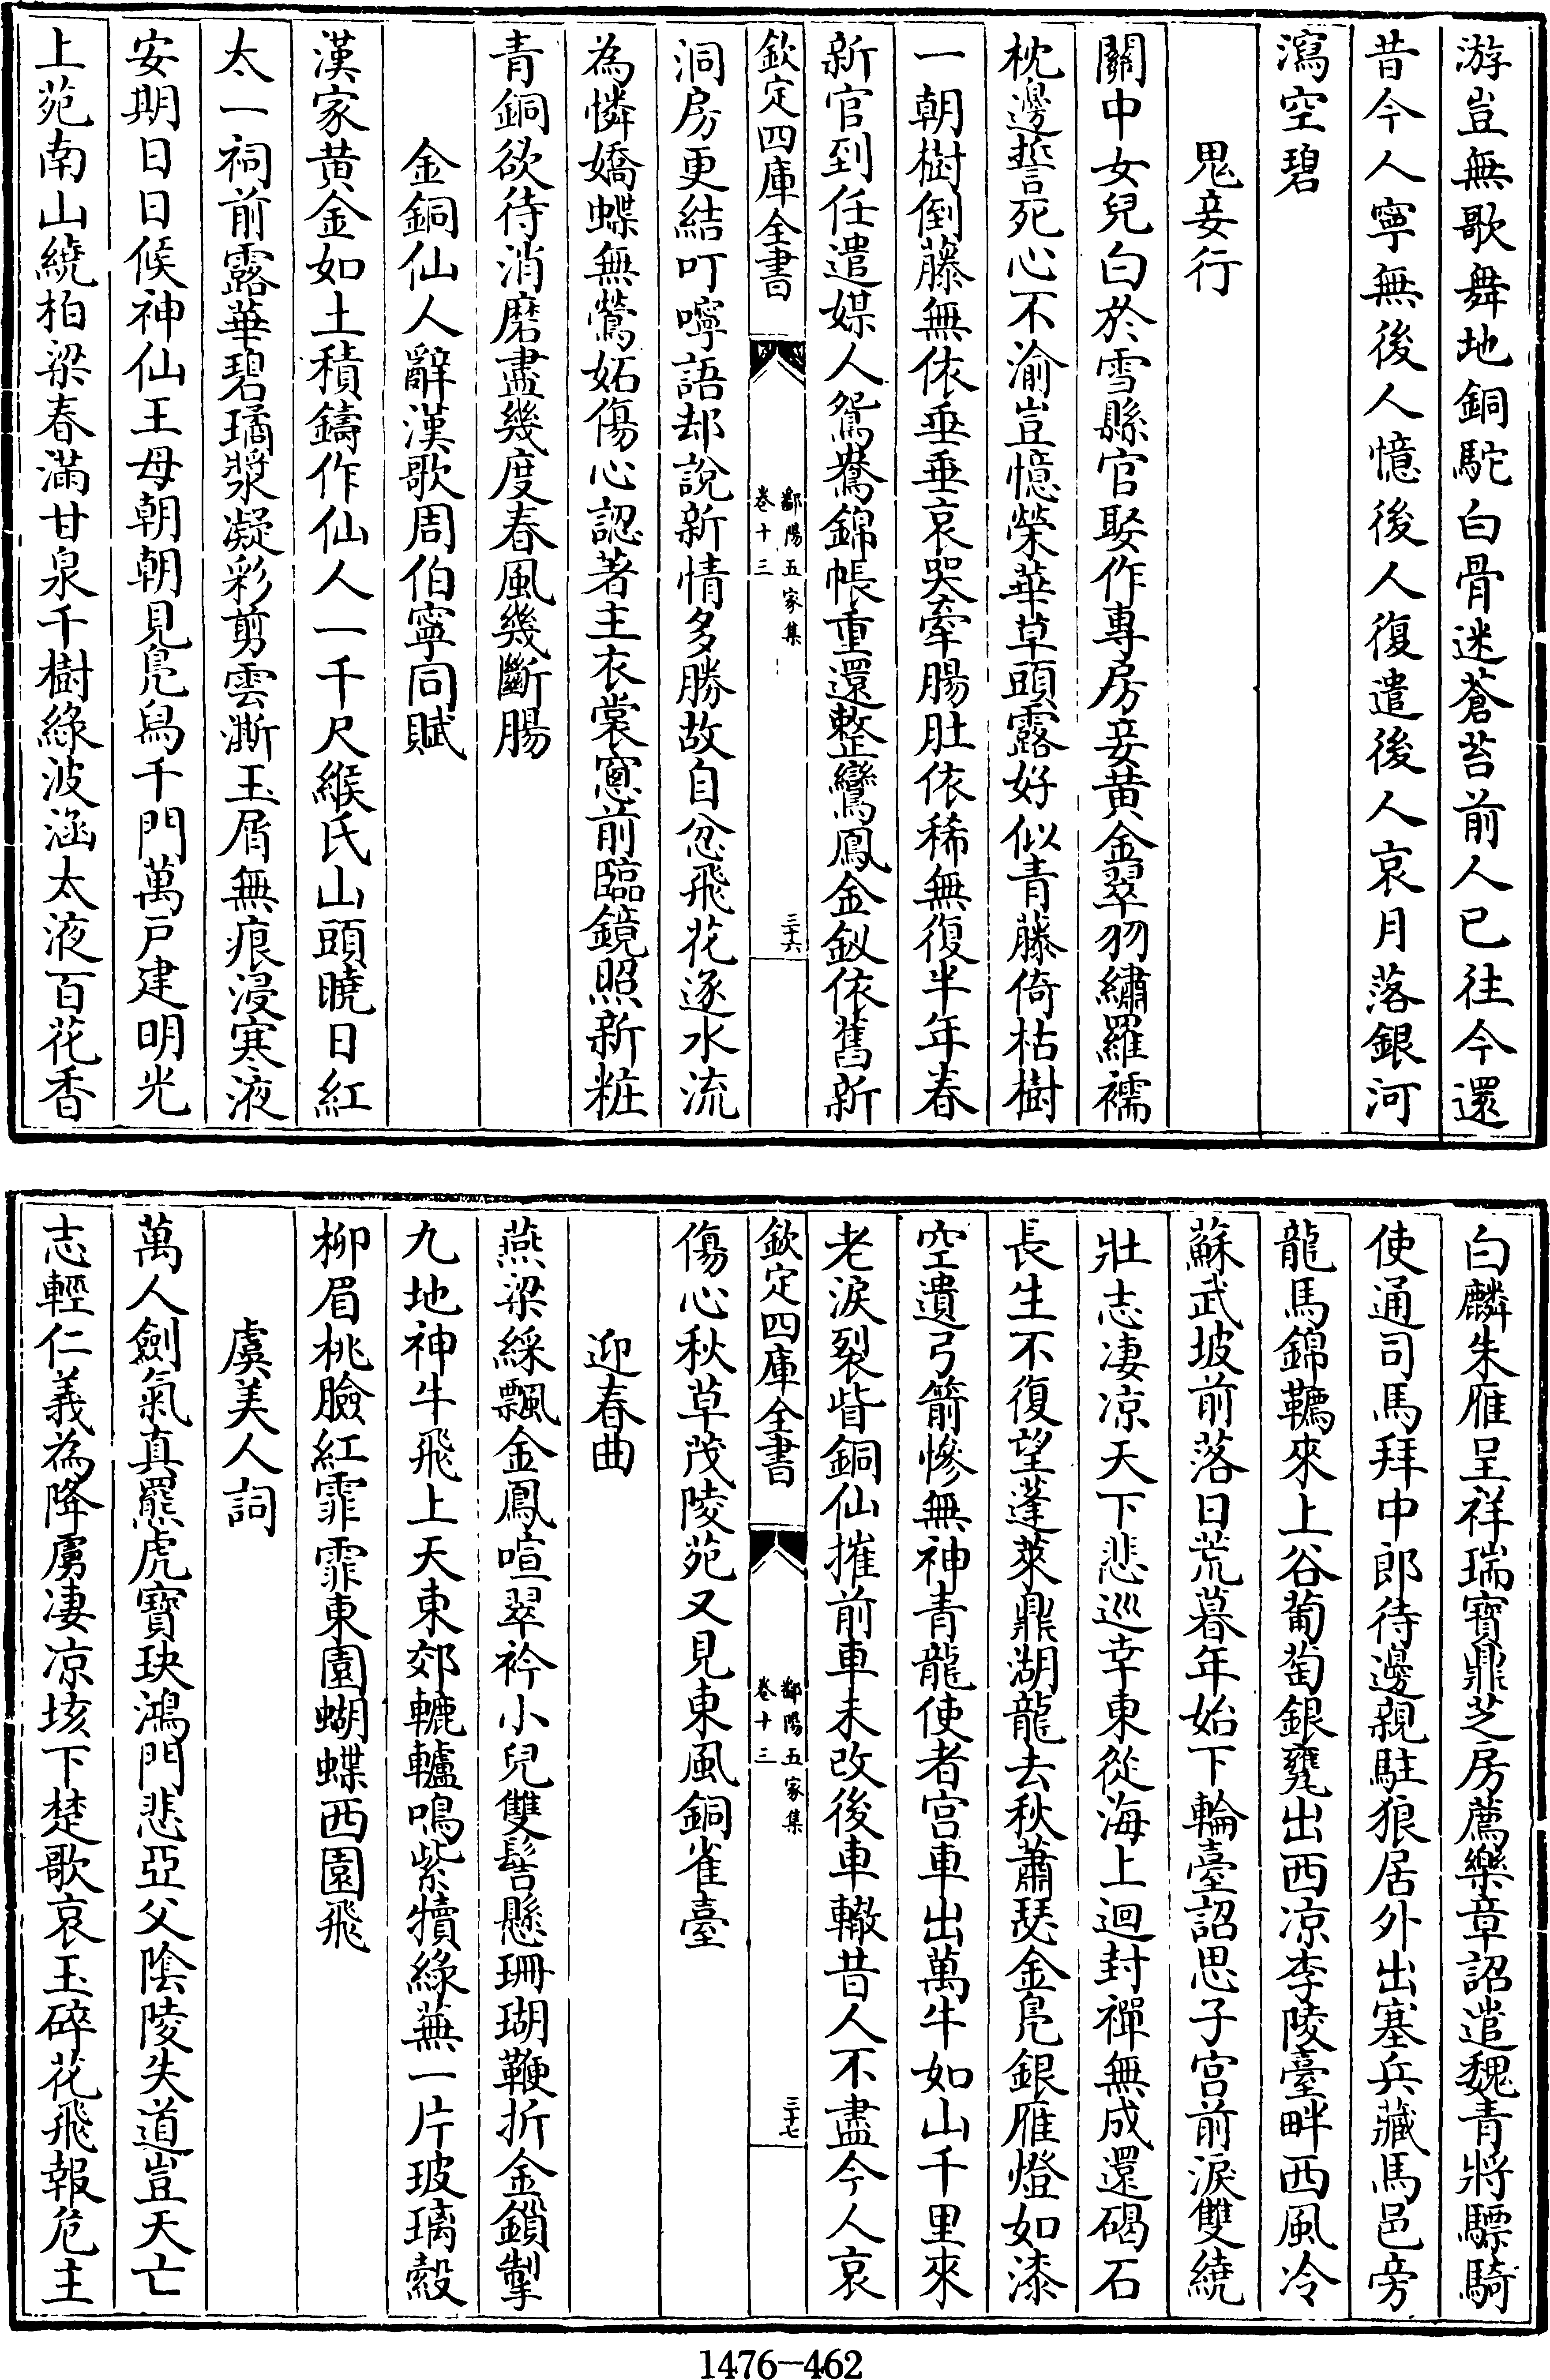 游豈無歌舞地銅駝白骨迷蒼苔前人已往今還
昔今人寧無後人憶後人復遣後人哀月落銀河
瀉空碧
鬼妾行
關中女兒白於雪縣官娶作專房妾黄金翠羽繡羅襦
枕邊誓死心不渝豈憶榮華草頭露好似青藤倚枯樹
一朝樹倒藤無依垂垂哀哭牽腸肚依稀無復半年春
新官到任遣媒人鴛鴦錦帳重還整鸞鳳金釵依舊新
欽定四庫全書
鄱陽五家集
卷十三
三十六
洞房更結叮嚀語却說新情多勝故自忿飛花逐水流
為憐嬌蝶無鶯妬傷心認著主衣裳窻前臨鏡照新粧
青銅欲待消磨盡幾度春風幾斷腸
金銅仙人辭漢歌周伯寧同賦
漢家黄金如土積鑄作仙人一千尺緱氏山頭曉日紅
太一祠前露華碧璚漿凝彩剪雲澌玉屑無痕浸寒液
安期日日候神仙王母朝朝見鳧舄千門萬戸建明光
上苑南山繞柏梁春滿甘泉千樹綠波涵太液百花香
白麟朱雁呈祥瑞寶鼎芝房薦樂章詔遣魏青將驃騎
使通司馬拜中郎待邊親駐狼居外出塞兵藏馬邑旁
龍馬錦韉來上谷葡萄銀甕出西凉李陵臺畔西風冷
蘇武坡前落日荒暮年始下輪臺詔思子宫前淚雙繞
壯志凄凉天下悲巡幸東從海上迴封禪無成還碣石
長生不復望蓬萊鼎湖龍去秋蕭瑟金鳧銀雁燈如漆
空遺弓箭慘無神青龍使者宫車出萬牛如山千里來
老淚裂眥銅仙摧前車未改後車轍昔人不盡今人哀
欽定四庫全書
鄱陽五家集
卷十三
三十七
傷心秋草茂陵苑又見東風銅雀臺
迎春曲
燕梁綵飄金鳳喧翠衿小兒雙髻懸珊瑚鞭折金鎖掣
九地神牛飛上天東郊轆轤鳴紫犢綠蕪一片玻璃縠
柳眉桃臉紅霏霏東園蝴蝶西園飛
虞美人詞
萬人劒氣真羆虎寶玦鴻門悲亞父陰陵失道豈天亡
志輕仁義為降虜凄凉垓下楚歌哀玉碎花飛報危主
1476-462